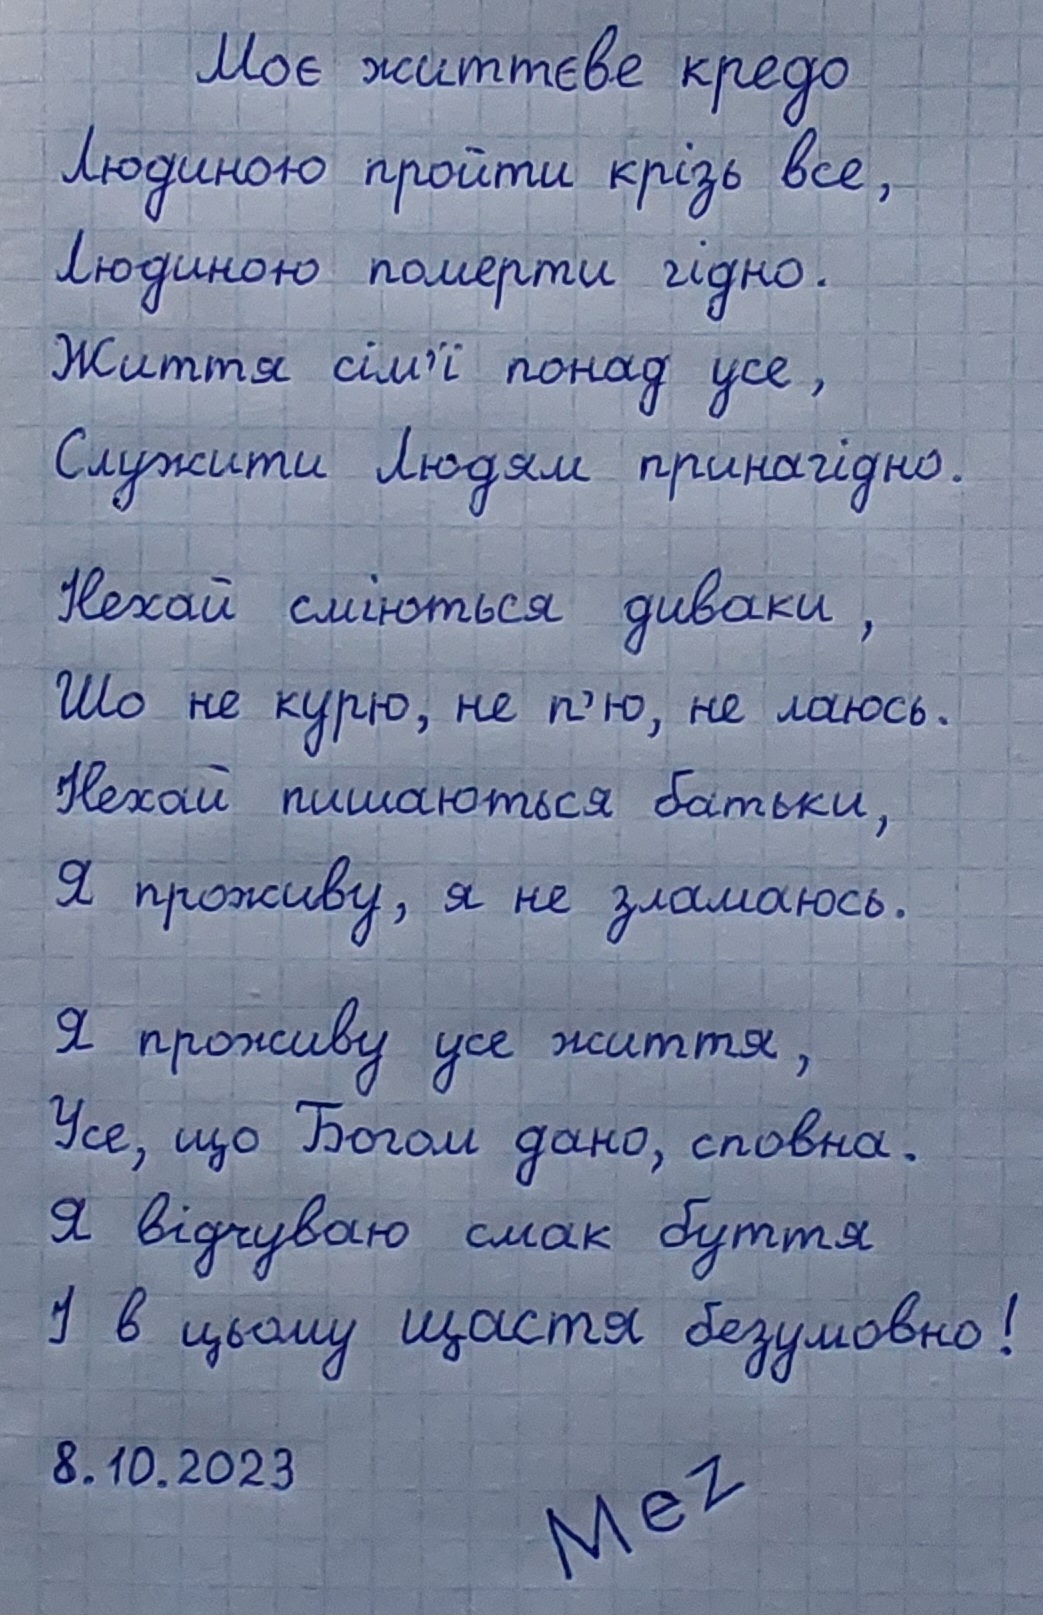 Моє життєве кредо
Людиною пройти крізь все,
Людиною померти гідно.
Життя сім'ї понад усе,
Служити Людям принагідно.
Нехай сміються диваки,
Шо не курю, не п'ю, не лаюсь.
Нехай пишаються батьки,
Я проживу, я не зламаюсь.
Я проживу усе життя,
Усе, що Богом дано, сповна.
Я відчуваю смак буття
І в цьому щастя безумовно!
8.10.2023
Mez